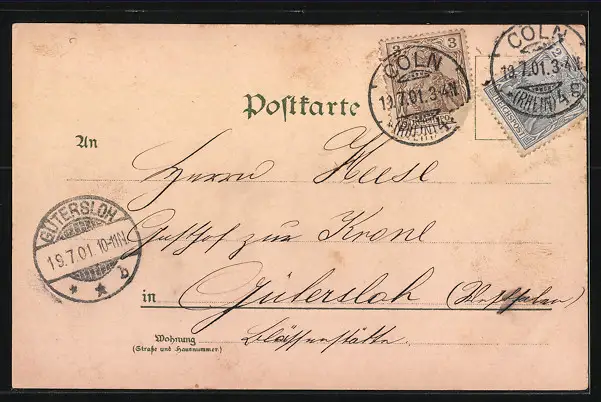 3 3
CÖLN
19.7.01.3-4N
*(RHEIN)4.
CÖLN
19.7.01.3-4N
*(RHEIN)4.
Postkarte
An
Herrn Heese
Gasthof zur Krone
GÜTERSLOH
19.7.01 10-11N
* * b
in Gütersloh (Westfalen)
Wohnung
(Straße und Hausnummer)